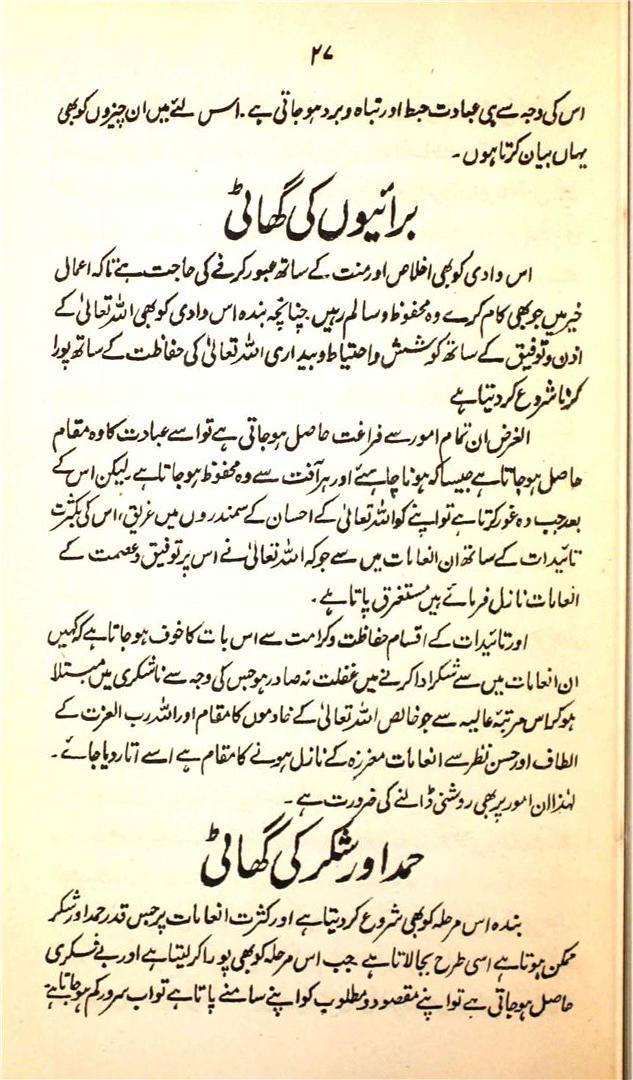 ۲۷
اس کی وجہ سے ہی عبادت حبط اور تباہ و برد ہو جاتی ہے۔ اس لئے میں ان چیزوں کو بھی
یہاں بیان کرتا ہوں۔
برائیوں کی گھاٹی
اس وادی کو بھی اخلاص اور منت کے ساتھ عبور کرنے کی حاجت ہے تاکہ اعمالِ
خیر میں جو بھی کام کرے وہ محفوظ و سالم رہیں چنانچہ بندہ اس وادی کو بھی اللہ تعالیٰ کے
اذن و توفیق کے ساتھ کوشش و احتیاط و بیداری اللہ تعالیٰ کی حفاظت کے ساتھ پورا
کرنا شروع کر دیتا ہے
الغرض ان تمام امور سے فراغت حاصل ہو جاتی ہے تو اسے عبادت کا وہ مقام
حاصل ہو جاتا ہے جیسا کہ ہونا چاہیئے اور ہر آفت سے وہ محفوظ ہو جاتا ہے۔ لیکن اس کے
بعد جب وہ غور کرتا ہے تو اپنے کو اللہ تعالیٰ کے احسان کے سمندروں میں غریق، اس کی بکثرت
تائیدات کے ساتھ ان انعامات میں سے جو کہ اللہ تعالیٰ نے اس پر توفیق و عصمت کے
انعامات نازل فرمائے ہیں مستغرق پاتا ہے۔
اور تائیدات کے اقسام حفاظت و کرامت سے اس بات کا خوف ہو جاتا ہے کہ کہیں
ان انعامات میں سے شکر ادا کرنے میں غفلت نہ صادر ہو جس کی وجہ سے ناشکری میں مبتلا
ہو کر اس مرتبۂ عالیہ سے جو خالص اللہ تعالیٰ کے خادموں کا مقام اور اللہ رب العزت کے
الطاف اور حسن نظر سے انعامات معززہ کے نازل ہونے کا مقام ہے اسے اتار دیا جائے۔
لہٰذا ان امور پر بھی روشنی ڈالنے کی ضرورت ہے۔
حمد اور شکر کی گھاٹی
بندہ اس مرحلہ کو بھی شروع کر دیتا ہے اور کثرت انعامات پر جس قدر حمد اور شکر
ممکن ہوتا ہے اسی طرح بجا لاتا ہے جب اس مرحلہ کو بھی پورا کر لیتا ہے اور بے فکری
حاصل ہو جاتی ہے تو اپنے مقصود و مطلوب کو اپنے سامنے پاتا ہے تو اب سرور کم ہو جاتا ہے